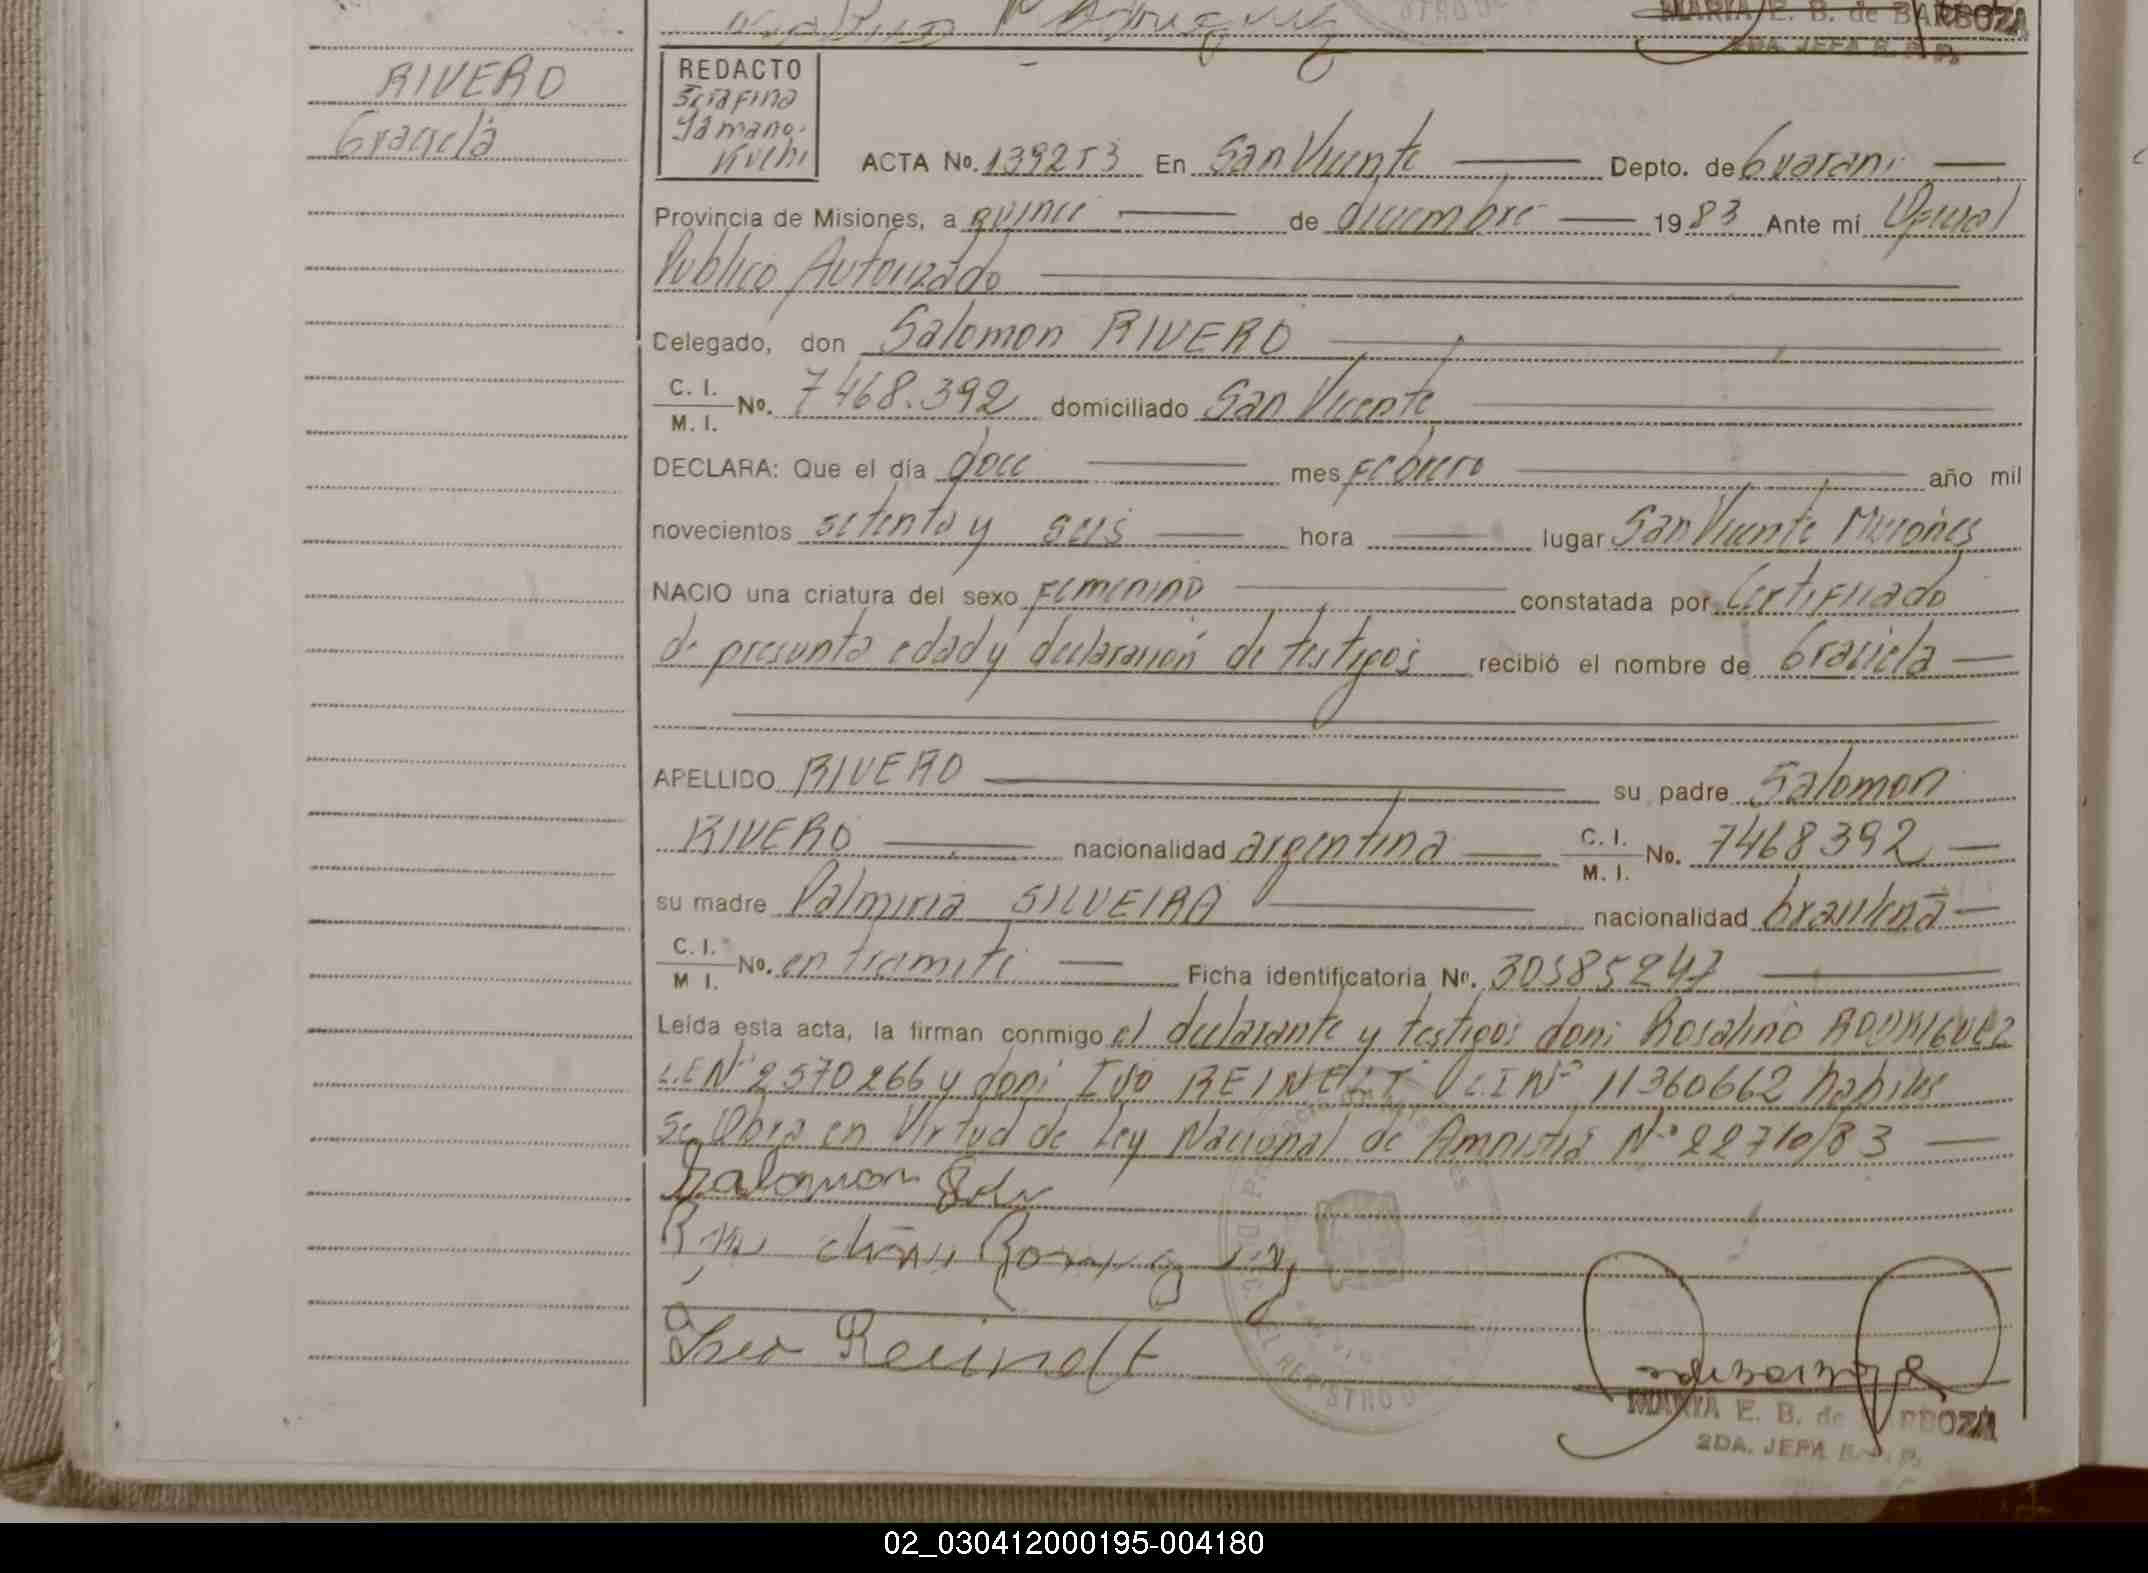 MARIA E. B. de BARBOZA
2DA. JEFA
RIVERO
Graciela
REDACTO
Serafina
Yamano-
ACTA No. 139253 En San Vicente Depto. de Guarani
Provincia de Misiones, a quince de diciembre 1983 Ante mí Oficial
Publico Autorizado
Delegado, don Salomon RIVERO
C. I.
M. I. No. 7468.392 domiciliado San Vicente
DECLARA: Que el día doce mes Febrero año mil
novecientos setenta y seis hora lugar San Vicente Misiones
NACIO una criatura del sexo Femenino constatada por Certificado
de presunta edad y declaración de testigos recibió el nombre de Graciela
APELLIDO RIVERO su padre Salomon
RIVERO nacionalidad argentina C. I.
M. I. No. 7468392
su madre Palmiria SILVEIRA nacionalidad brasilena
C. I.
M I. No. en tramite Ficha identificatoria Nº. 30585247
Leída esta acta, la firman conmigo el declarante y testigos don: Rosalino RODRIGUEZ
L.E Nº 2570266 y don: Ivo REINELT C.I Nº 11360662 habiles
Se Obra en Virtud de Ley Nacional de Amnistia Nº 22710/83
Salomon
Ivo Reinelt
MARIA E. B. de BARBOZA
2DA. JEFA
02_030412000195-004180